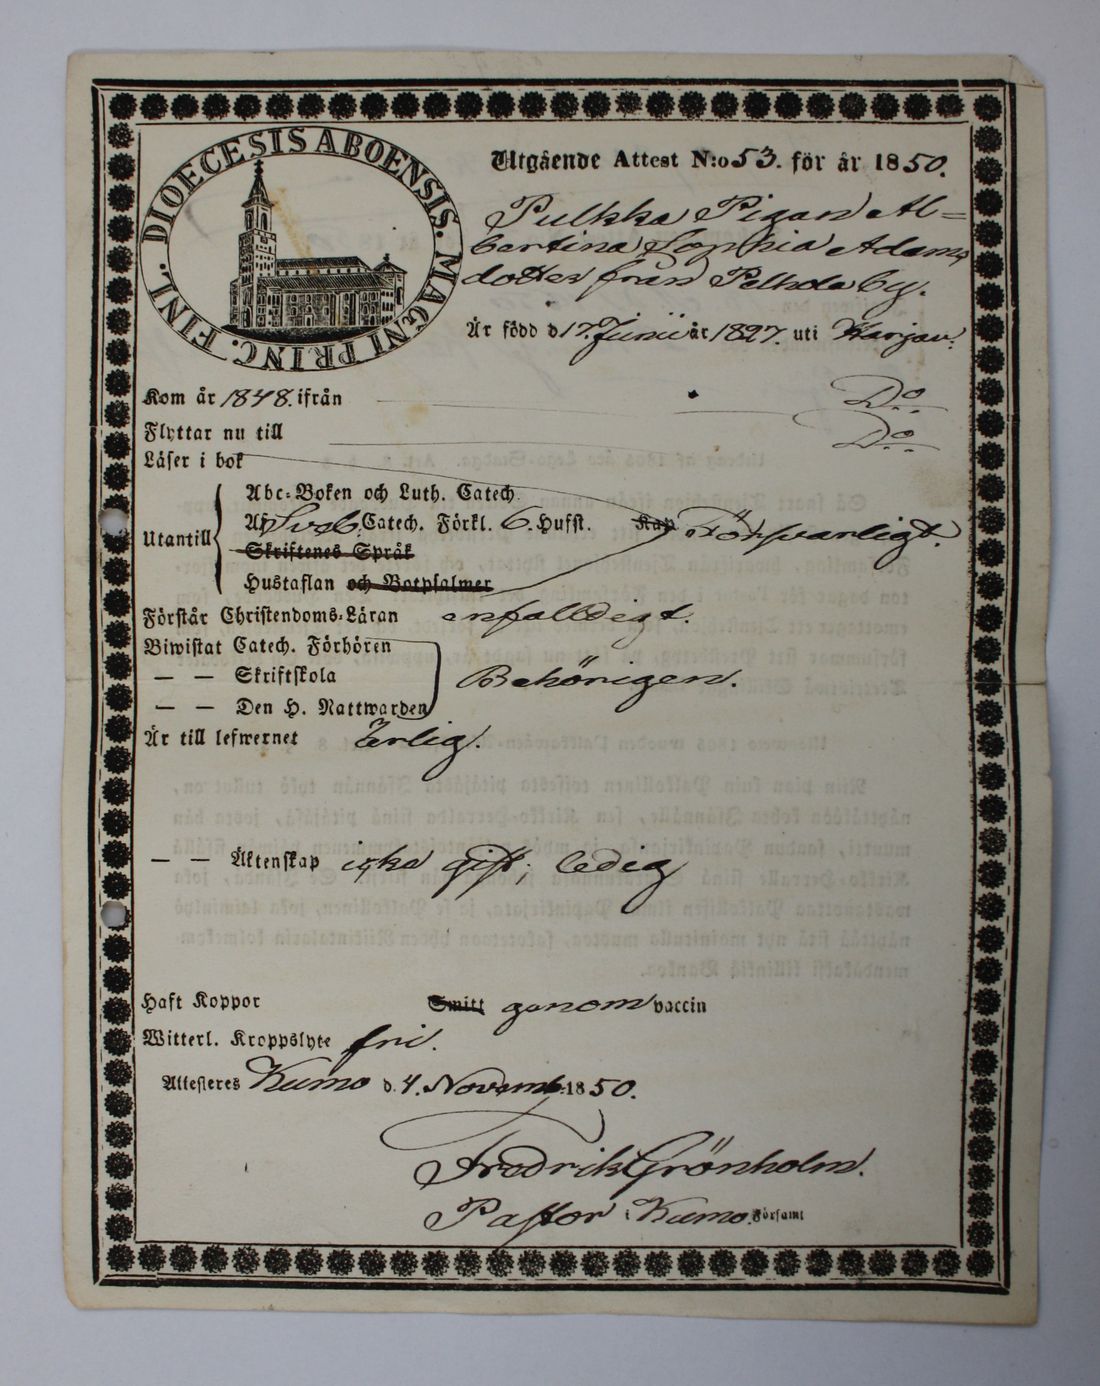 DIOECESIS ABOENSIS. MAGNI PRINC. FINL.
Utgående Attest N:o 53. för år 1850.
Pulkka Pigan Al=
bertina Sophia Adams
dotter från Pelhola by.
Är född d 17. Junii år 1827. uti Harjav:
Kom år 1848. ifrån D:o
Flyttar nu till D:o
Läser i bok
Abc=Boken och Luth. Catech.
Utantill Af Sveb. Catech. Förkl. 6 Hufst. Kap Försvarligt.
Skriftenes Språk
Hustaflan och Botpsalmer
Förstår Christendoms=Läran enfalldigt.
Biwistat Catech. Förhören
— — Skriftskola Behörigen.
— — Den H. Nattwarden
Är till lefwernet Ärlig.
— — Äktenskap icke gift; ledig
Haft Koppor Smitt genom vaccin
Witterl. Kroppslyte fri.
Attesteres Kumo d. 4. Novemb. 1850.
Fredrik Grönholm.
Pastor i Kumo Församl